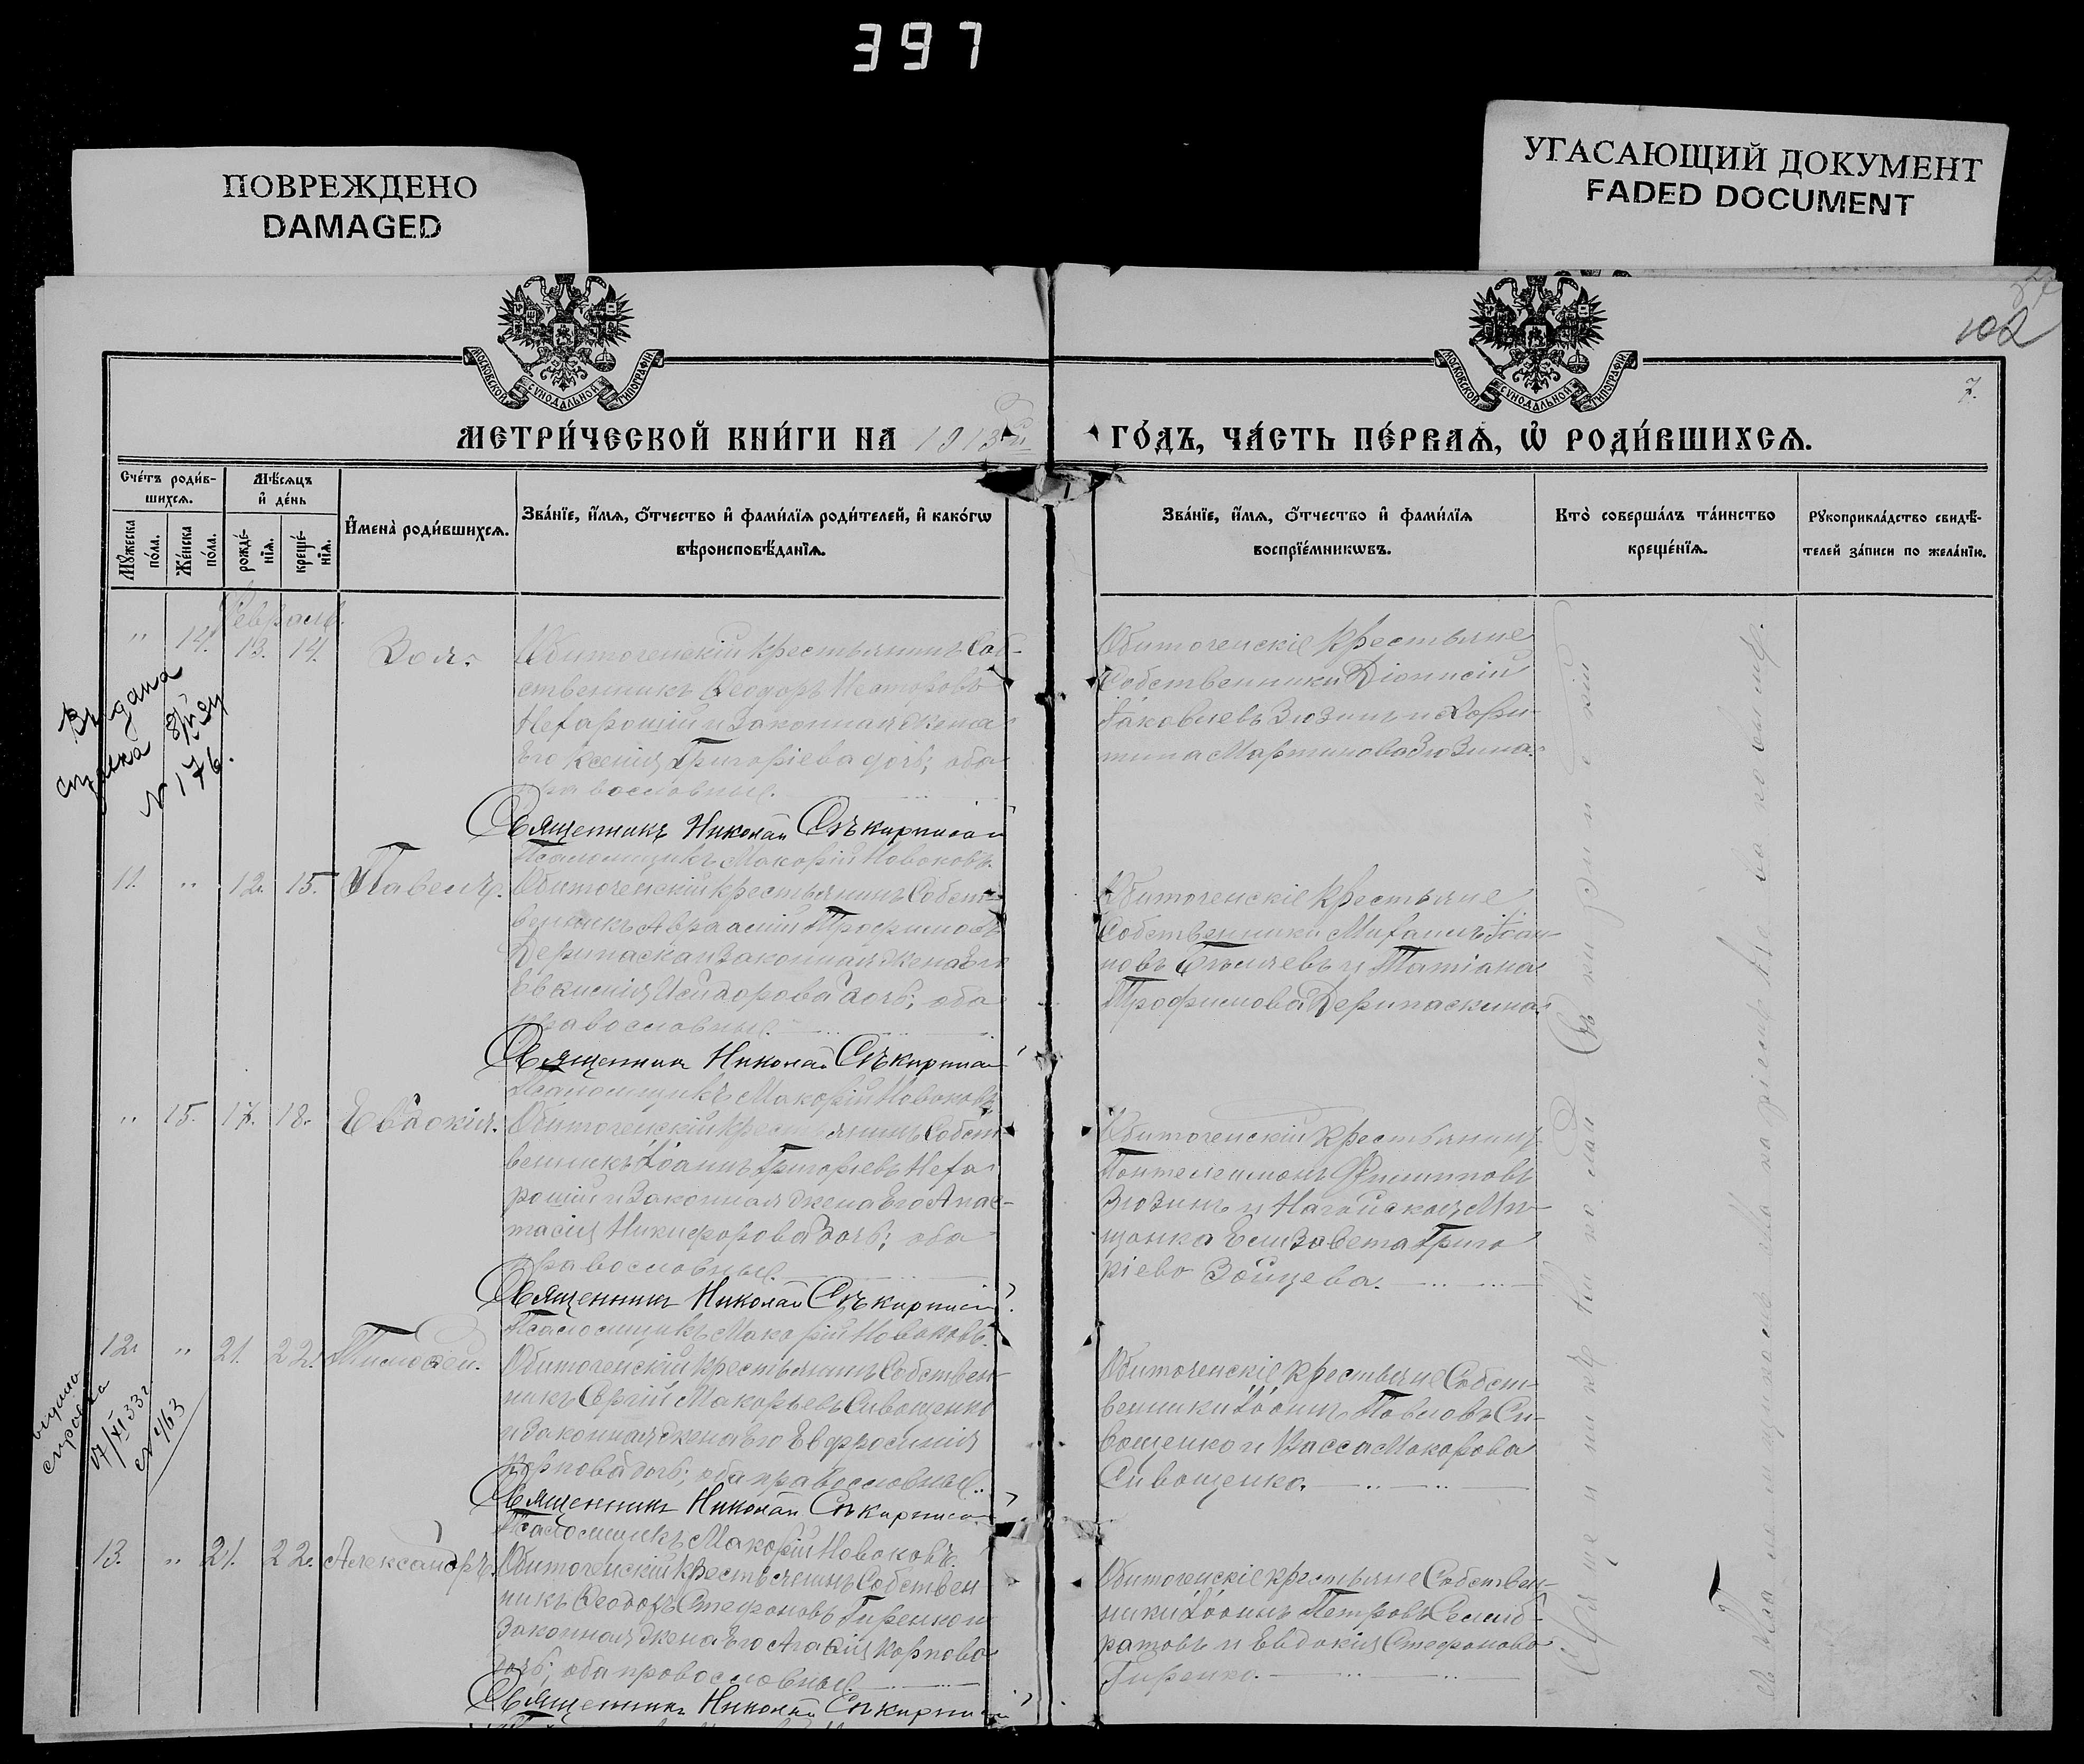 397
ПОВРЕЖДЕНО
DAMAGED
УГАСАЮЩИЙ ДОКУМЕНТ
FADED DOCUMENT
МОСКОВСКОЙ СѴНОДАЛЬНОЙ ТИПОГРАФІИ
МОСКОВСКОЙ СѴНОДАЛЬНОЙ ТИПОГРАФІИ
102
7.
МЕТРИ́ЧЕСКОЙ КНИ́ГИ НА 1913й
ГО́ДЪ, ЧА́СТЬ ПЕ́РВАѦ, Ѽ РОДИ́ВШИХСѦ.
Сче́тъ роди́в-
шихсѧ.
Мꙋ́жеска
по́ла.
Же́нска
по́ла.
Мѣ́сѧцъ
и҆ де́нь
рожде́-
нїѧ.
креще́-
нїѧ.
И҆мена̀ роди́вшихсѧ.
Зва́нїе, и҆́мѧ, ѻ҆́тчество и҆ фами́лїѧ роди́телей, и҆ како́гѡ
вѣроисповѣ́данїѧ.
Зва́нїе, и҆́мѧ, ѻ҆́тчество и҆ фами́лїѧ
воспрїе́мникѡвъ.
Кто̀ соверша́лъ та́инство
креще́нїѧ.
Рꙋкоприкла́дство свидѣ́-
телей за́писи по жела́нїю.
Февраль.
" 14. 13. 14. Зоя.
Обиточенскій крестьянинъ Соб-
ственникъ Ѳеодоръ Несторовъ
Нехарошій и законная жена
Его Ксенія Григоріева дочь; оба
православные.
Священникъ Николай Секирискій
Псаломщикъ Макарій Новаковъ.
Обиточенскіе крестьяне
Собственники Діонисій
Іаковлевъ Зюзинъ и Хари-
тина Мартинова Зюзина.
Выдана
справка
№ 176.
11. " 12. 15. Павелъ.
Обиточенскій крестьянинъ Собст-
венникъ Трофимовъ
Дерипаска и законная жена Его
Исидорова дочь; оба
православные.
Священникъ Николай Секирискій
Псаломщикъ Макарій Новаковъ
Обиточенскіе крестьяне
Собственники Михаилъ Іоан-
новъ и Татіана
Трофимова Дерипаскина.
" 15. 17. 18. Евдокія.
Обиточенскій крестьянинъ Собст-
венникъ Іоаннъ Григорьевъ Неха-
рошій и законная жена Его Анас-
тасія Никифорова дочь; оба
православные.
Священникъ Николай Секирискій
Псаломщикъ Макарій Новаковъ.
Обиточенскій крестьянинъ
Пантелеимонъ Филипповъ
Зюзинъ и Ногайская Мѣ-
щанка Елизавета Григо
ріева Зайцева.
12. " 21. 22. Тимоѳей.
Обиточенскій крестьянинъ Собствен-
никъ Сергій Макарьевъ Сиващенко
и законная жена Его Евфросинія
Карпова дочь; оба православные.
Священникъ Николай Секирискій
Псаломщикъ Макарій Новаковъ.
Обиточенскіе крестьяне Собст-
венники Іоаннъ Павловъ Си-
ващенко и Васса Макарова
Сиващенко.
выдана
справка
17/XI 33 г.
№ 463
13. " 21. 22. Александръ.
Обиточенскій крестьянинъ Собствен-
никъ Ѳеодоръ Стефановъ Гиренко и
законная жена Его Агаѳія Карпова
дочь; оба православные.
Священникъ Николай Секирискій
Обиточенскіе крестьяне Собствен-
ники Іоаннъ Петровъ Селиб-
ратовъ и Евдокія Стефанова
Гиренко.
Священникъ Николай Секирискій